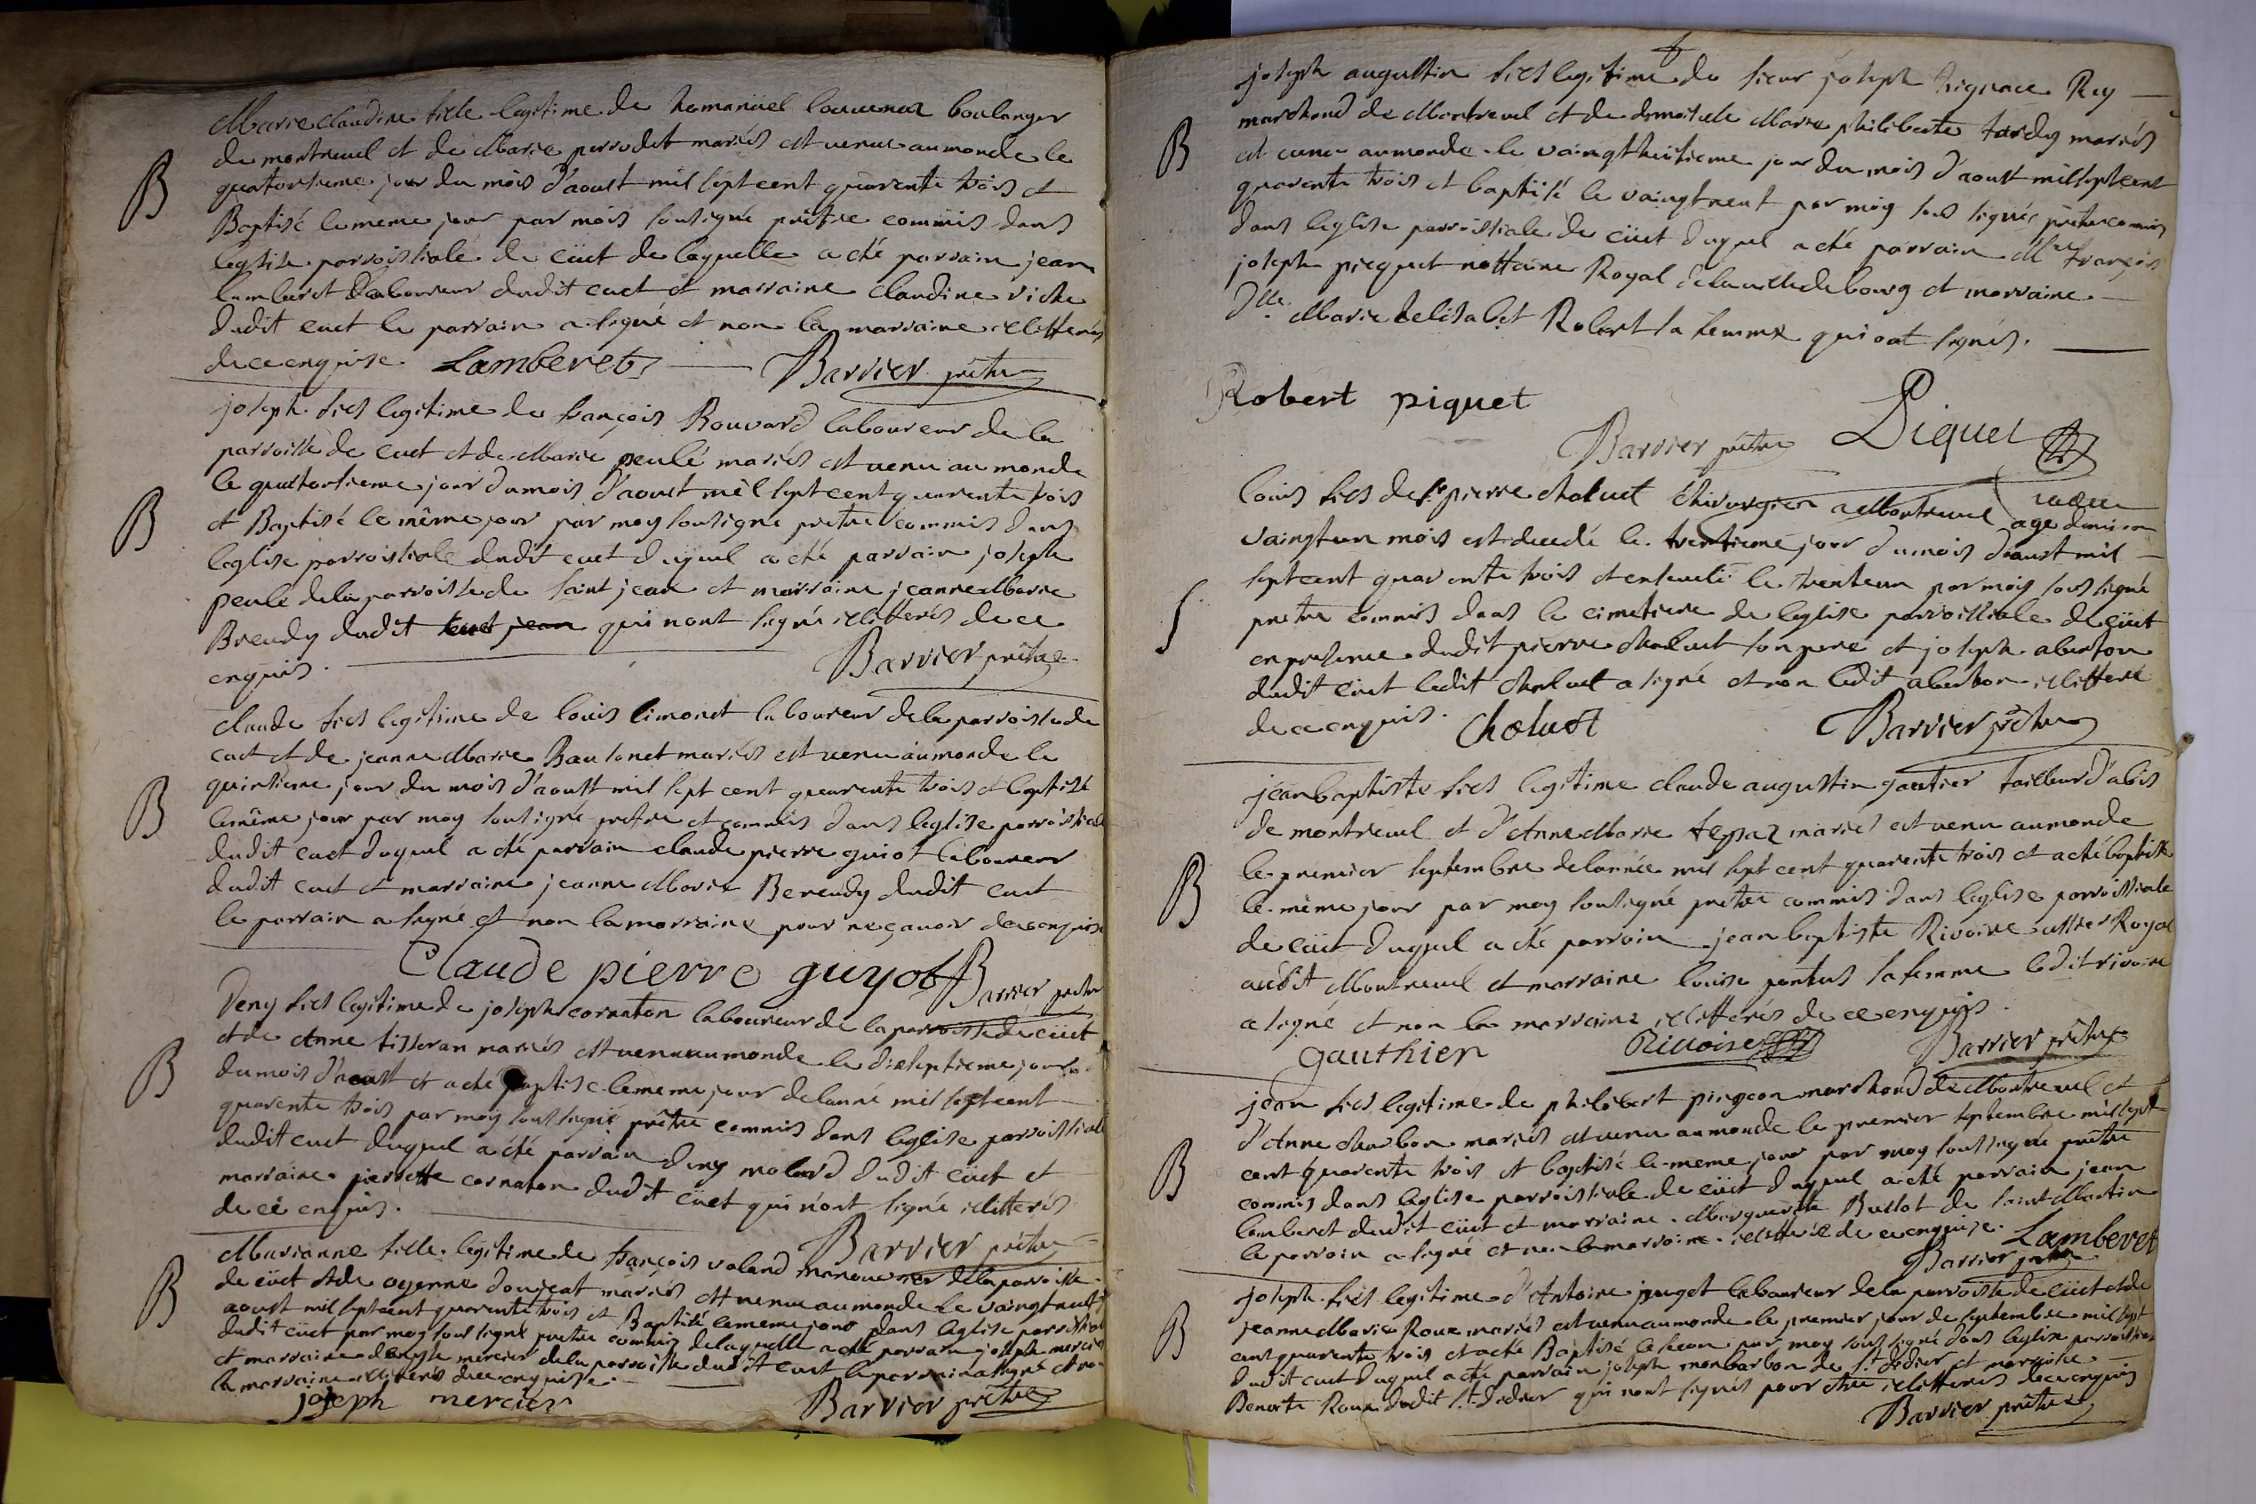 B
Marie claudine fille legitime de hemanuel louuenaz boulanger
de montreuel et de Marie perrodet mariés est venue au monde le
quatorsieme jour du mois d'aoust mil sept cent quarente trois et
Baptisé le meme jour par mois sousigné prêtre commis dans
leglise parroissiale de cüet de laquelle a été parrain jean
lamberet laboureur dudit cuet et marraine claudine viche
dudit cuet le parrain a signé et non la marraine illitterés
de ce enquise Lamberet Barvier prêtre
B
joseph fils legitime de françois Rouvard laboureur de la
parroisse de cuet et de Marie peulé mariés est venu au monde
le quatorsieme jour du mois d'aoust mil sept cent quarente trois
et Baptisé le même jour par moy sousigné pretre commis dans
leglise parroissiale dudit cuet duquel a été parrain joseph
peulé de la parroisse de saint jean et marraine jeanne Marie
Breudy dudit qui n'ont signé illiterés de ce
enquis. Barvier prêtre
B
claude fils legitime de louis limonet laboureur de la parroisse de
cuet et de jeanne Marie Bausonet mariés est venu au monde le
quinsieme jour du mois d'aoust mil sept cent quarente trois et baptisé
le même jour par moy sousigné prettre et commis dans leglise parroissiale
dudit cuet duquel a été parrain claude pierre guiot laboureur
dudit cuet et marraine jeanne Marie Bereudy dudit cuet
le parrain a signé et non la marraine pour ne sçavoir de ce enquise
Claude pierre guyot Barvier prêtre
B
Deny fils legitime de joseph cornaton laboureur de la parroisse de cüet
et de Anne tisseran mariés est venu au monde le dixseptieme jour
du mois d'aoust et a été baptisé le meme jour de lanné mil sept cent
quarente trois par moy soussigné prêtre commis dans leglise parroissiale
dudit cuet duquel a été parrain deny molard dudit cüet et
marraine pierrette cornaton dudit cüet qui n'ont signé illitterés
de ce enquis. Barvier prêtre
B
Marianne fille legitime de françois voland manouvrier de la parroisse
de cüet et de oyenne doujeat mariés est venue au monde le vaingtneuf
aoust mil sept cent quarente trois et Baptisé le meme jour dans leglise parroissiale
dudit cüet par moy soussigné pretre commis de laquelle a été parrain joseph mercier
et marraine denyse mercier de la parroisse dudit cuet le parrain a signé et non
la marraine illiterés de ce enquise.
joseph mercier Barvier prêtre
B
joseph augustin fils legitime de sieur joseph hignace Rey
marchand de Montreuel et de demoiselle Marie philiberte tardy mariés
est venu au monde le vaingthuitieme jour du mois d'aoust mil sept cent
quarente trois et baptisé le vaingtneuf par moy sous signés prêtre commis
dans leglise parroissiale de cüet duquel a été parrain Mre françois
joseph picquet nottaire Royal de la ville de bourg et marraine
Dlle Marie helisabet Robert sa femme qui ont signés.
Robert piquet Piquet
Barvier prêtre
S
louis fils de Sr pierre choluet chirurgien a Montreuel agé d'environ
vaingt un mois est decedé le trentieme jour du mois d'aoust mil
sept cent quarente trois et enseveli le trenteun par moy sous signé
pretre commis dans le cimetiere de leglise parroissiale de cüet
en presence dudit pierre choluet son pere et joseph aberton
dudit cüet ledit choluet a signé et non ledit aberton illitteré
de ce enquis. Choluet Barvier prêtre
B
jean baptiste fils legitime claude augustin gautier tailleur d'abis
de montreuel et d'Anne Marie mariés est venu au monde
le premier septembre de lannée mil sept cent quarente trois et a été baptisé
le même jour par moy sousigné pretre commis dans leglise parroissiale
de cüet duquel a été parrain jean baptiste Rivoire ussier Royal
audit Montreuel et marraine louise pontus sa femme ledit rivoire
a signé et non la marraine illitterés de ce enquis
gauthier Rivoire Barvier prêtre
B
jean fils legitime de philibert pingeon marchand de Montreuel et
d'Anne charbon mariés est venu au monde le premier septembre mil sept
cent quarente trois et baptisé le meme jour par moy soussigné prêtre
commis dans leglise parroissiale de cüet duquel a été parrain jean
lamberet dudit cüet et marraine Marguerite Bullot de saint Martin
le parrain a signé et non la marraine illitterée de ce enquise. Lamberet
Barvier prêtre
B
joseph fils legitime d'Antoine puget laboureur de la parroisse de cüet et de
jeanne Marie Roux mariés est venu au monde le premier jour de septembre mil sept
cent quarente trois et a été Baptisé le second par moy sous signé dans leglise parroissiale
dudit cuet duquel a été parrain joseph monbarbon de St didier et marraine
Benoite Roux dudit St didier qui n'ont signés pour être illitterés de ce enquis
Barvier prêtre